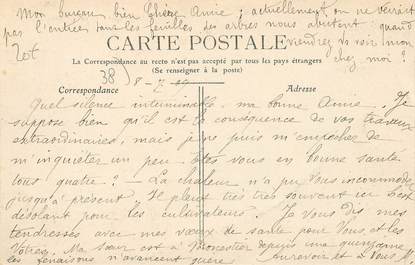 Mon bureau, bien chère Amie; actuellement, on ne verrait
pas l'entrée sans les feuilles des arbres nous abritent: quand
viendrez vous voir mon
chez moi?
CARTE POSTALE
La Correspondance au recto n'est pas acceptée par tous les pays étrangers
(Se renseigner à la poste)
38
8-7-
Correspondance
Adresse
Quel silence interminable, ma bonne Amie. Je
suppose bien qu'il est la conséquence de vos travaux
extraordinaires, mais je ne puis m'empêcher de
m'inquiéter un peu. Êtes vous en bonne santé
tous quatre? - La chaleur n'a pu vous incommoder
jusqu'à présent. Il pleut très très souvent ici c'est
désolant pour les cultivateurs. Je vous dis mes
tendresses avec mes vœux de santé pour Vous, et les
Vôtres. Ma sœur est à Monestier depuis une quinzaine
les fenaisons n'avancent guère. Au revoir et à Vous